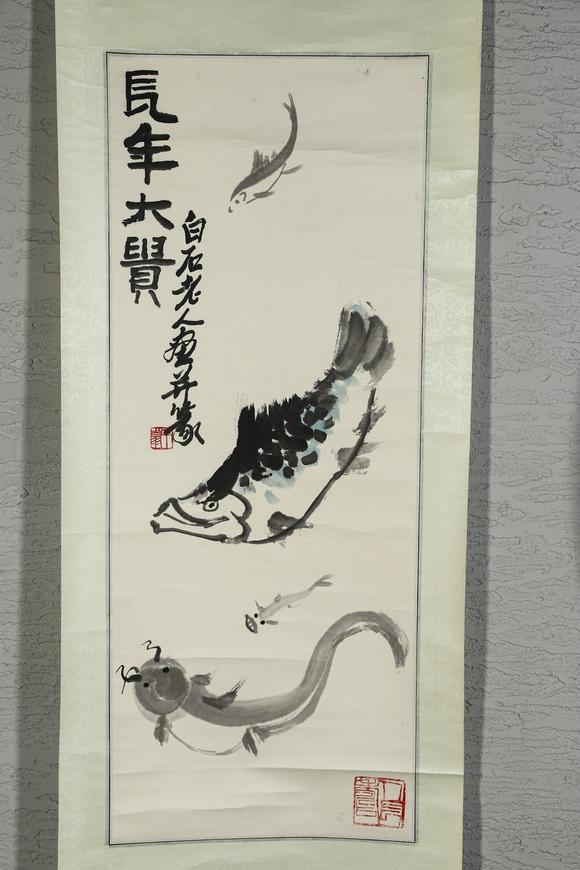 長年大貴
白石老人畫并篆